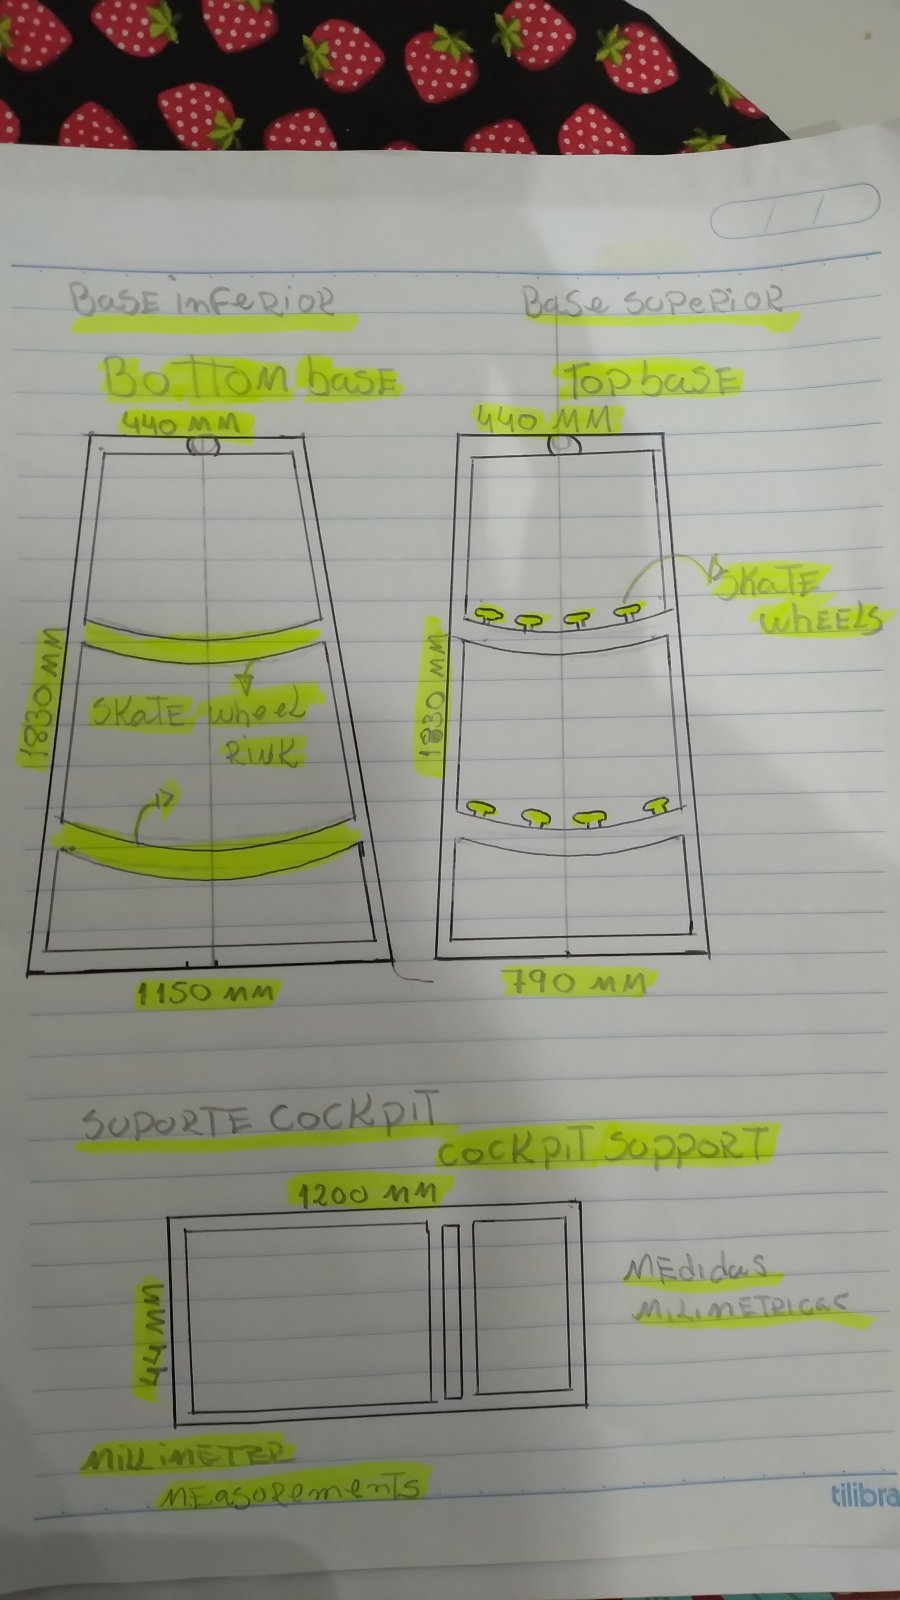 BASE INFERIOR
Base SUPERIOR
BOTTOM base
Top base
440 MM
440 MM
SKATE
WHEELS
1830 MM
1830 MM
SKATE wheel
RINK
1150 MM
790 MM
SUPORTE COCKPIT
COCKPIT SUPPORT
1200 MM
44 MM
MEdidas
MILIMETRICAS
MILLIMETER
MEASOREMENTS
tilibra